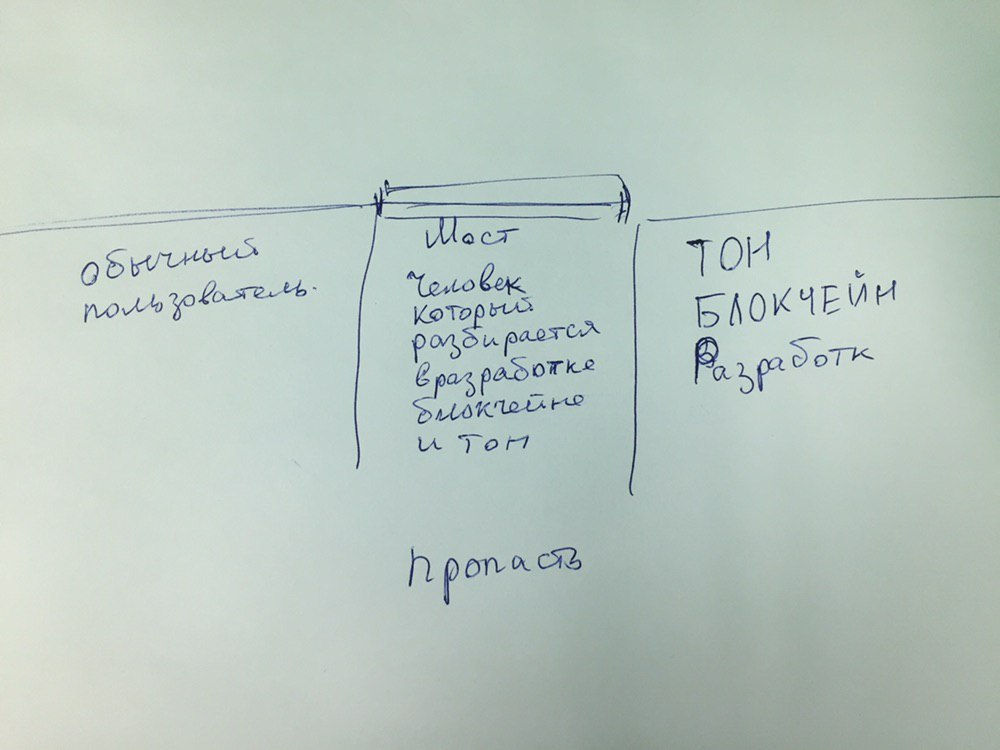 Обычный
пользователь.
Мост
Человек
который
разбирается
в разработке
блокчейне
и тон
ТОН
БЛОКЧЕЙН
Разработк
Пропасть